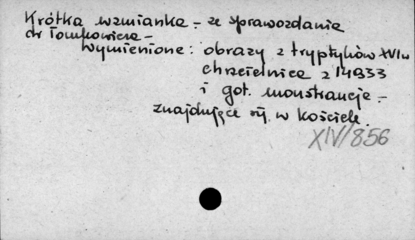 Krótka wzmianka - ze sprawozdania
dr Tomkowicza -
wymienione: obrazy z tryptyków XVI w
chrzcielnica z 14833
i got. monstrancje -
znajdujące się w kościele.
XIV/856